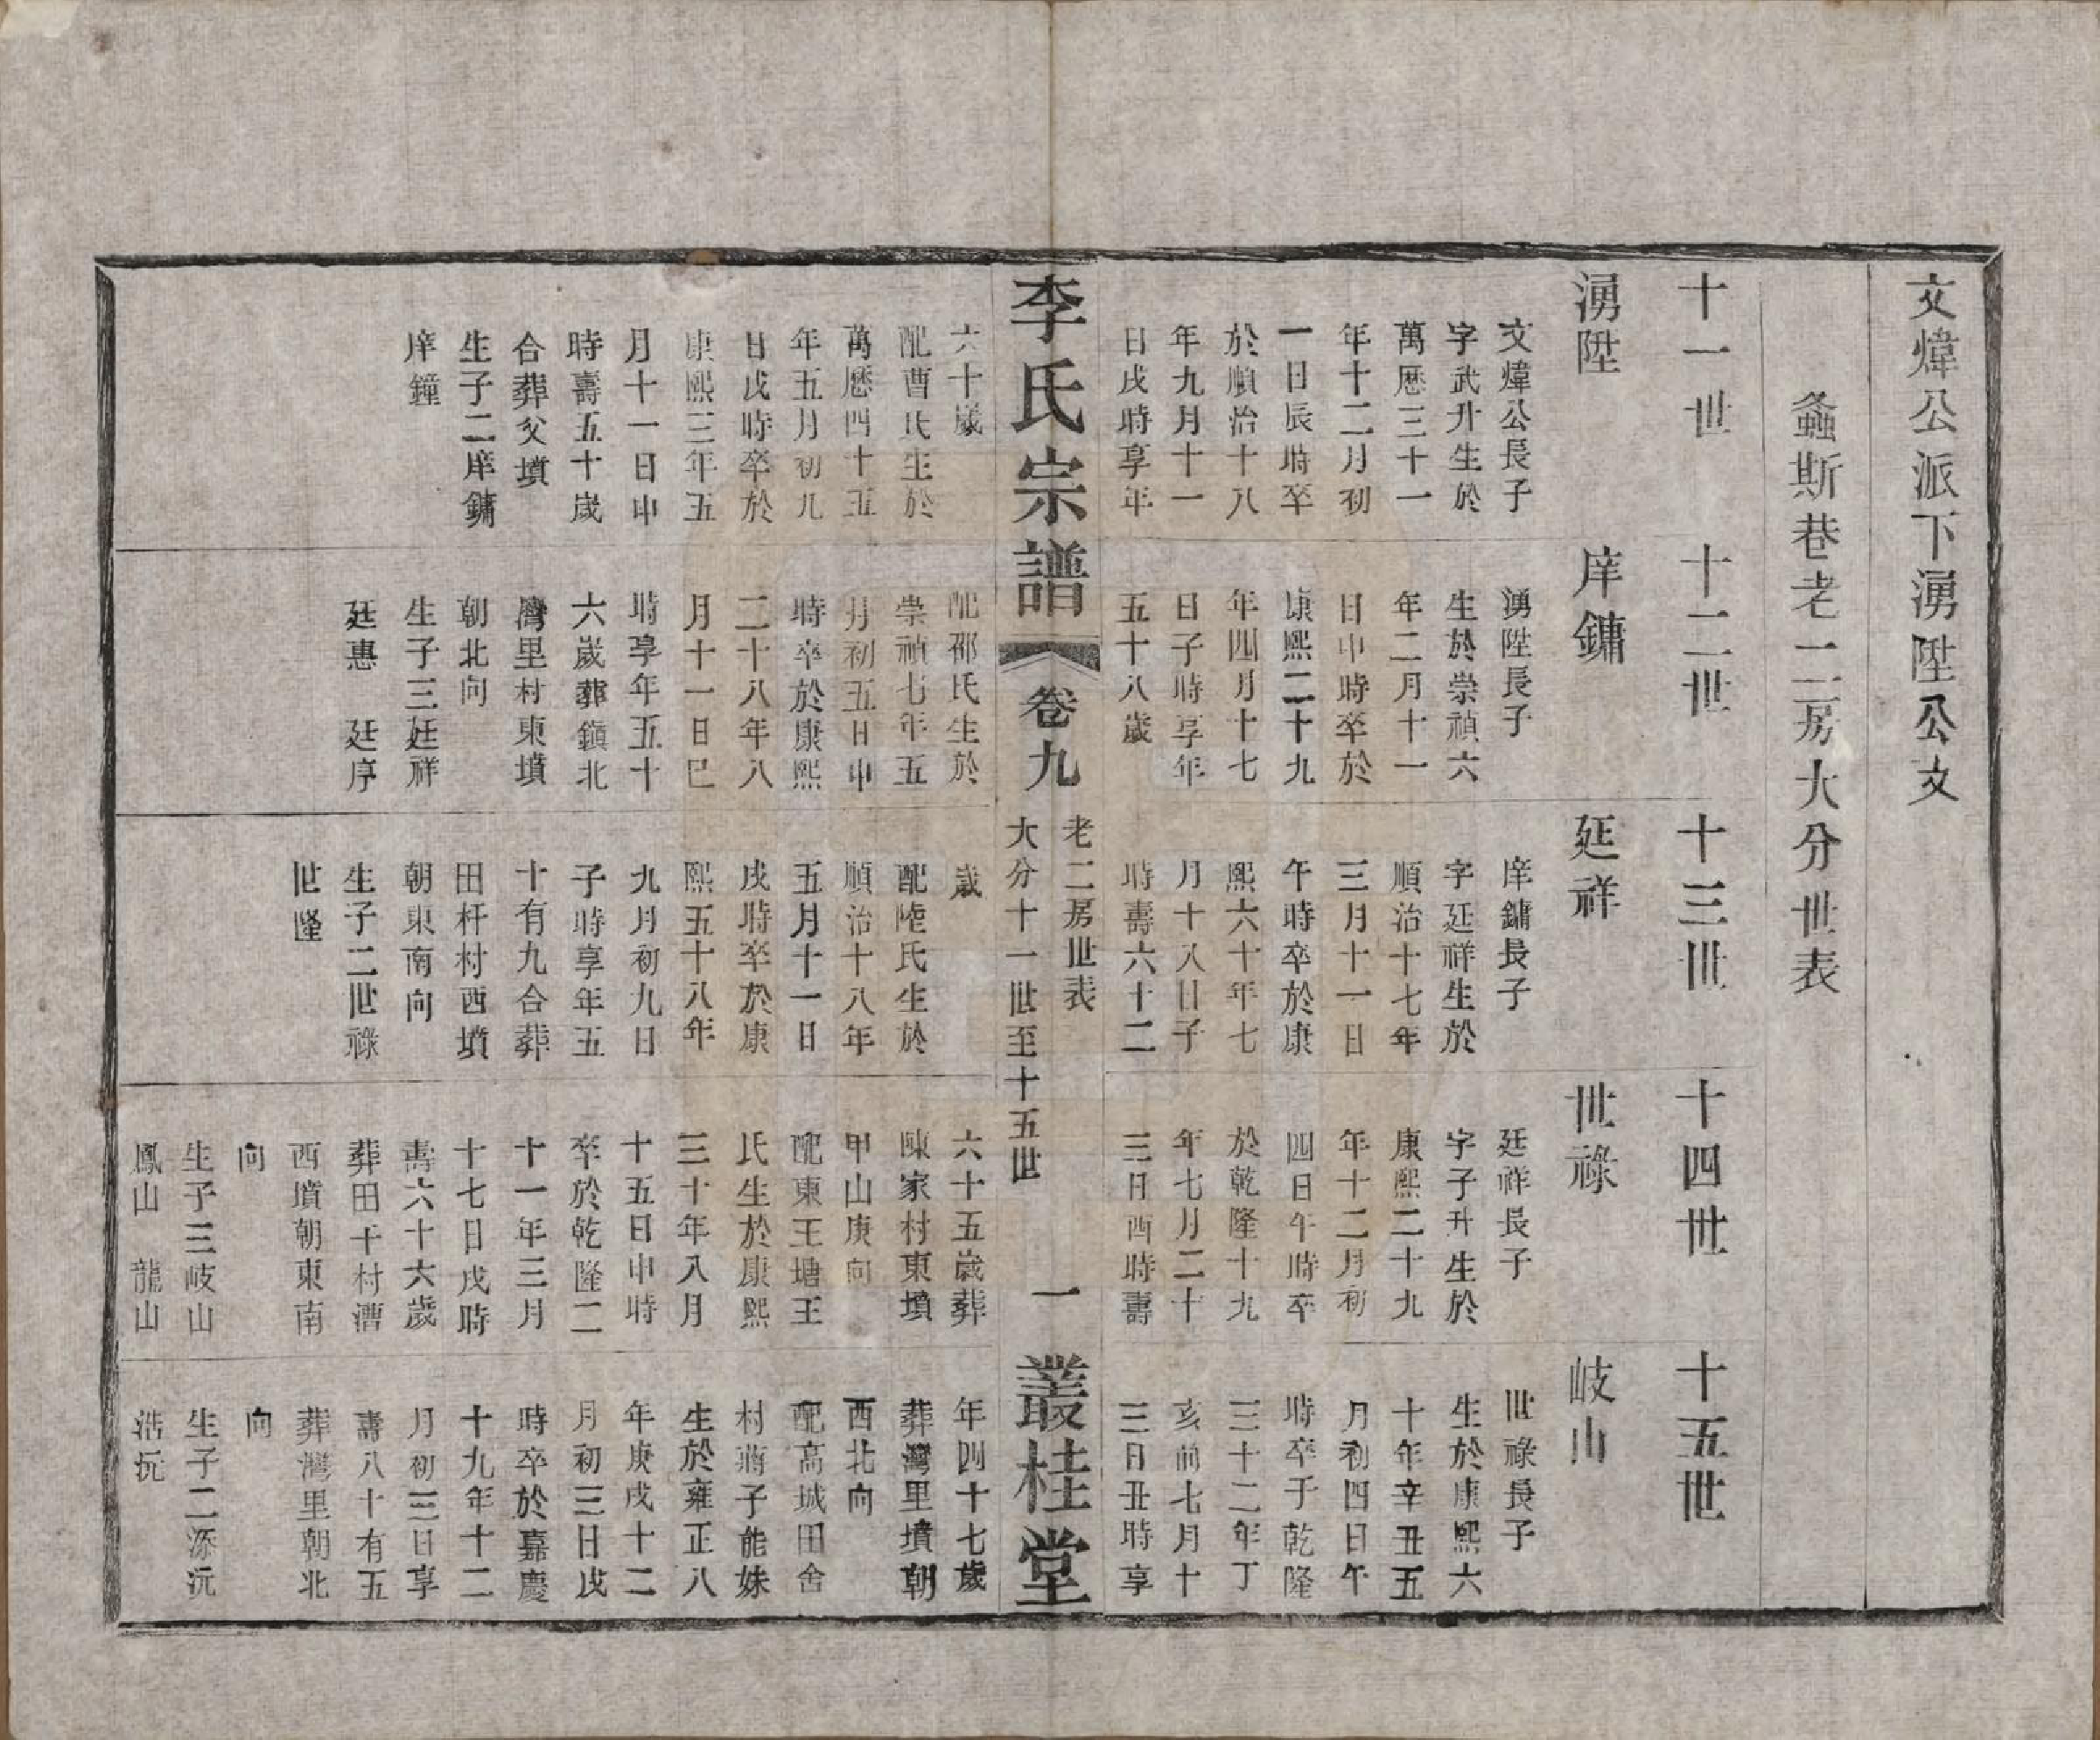 文煒公派下湧陞公文
螽斯巷老二房大分世表
十一世
十二世
十三世
十四世
十五世
湧陞
文煒公長子
字武升生於
萬厯三十一
年十二月初
一日辰時卒
於順治十八
年九月十一
日戌時享年
六十歲
配曹氏生於
萬厯四十五
年五月初九
日戌時卒於
康熙三年五
月十一日申
時壽五十歲
合葬父墳
生子二庠鏞
庠鐘
庠鏞
湧陞長子
生於崇禎六
年二月十一
日申時卒於
康熙二十九
年四月十七
日子時享年
五十八歲
配邵氏生於
崇禎七年五
月初五日申
時卒於康熙
二十八年八
月十一日巳
時享年五十
六歲葬鎭北
灣里村東墳
朝北向
生子三廷祥
廷惠　廷序
廷祥
庠鏞長子
字廷祥生於
順治十七年
三月十一日
午時卒於康
熙六十年七
月十八日子
時壽六十二
歲
配陸氏生於
順治十八年
五月十一日
戌時卒於康
熙五十八年
九月初九日
子時享年五
十有九合葬
田杆村西墳
朝東南向
生子二世祿
世隆
世祿
廷祥長子
字子升生於
康熙二十九
年十二月初
四日午時卒
於乾隆十九
年七月二十
三日酉時壽
六十五歲葬
陳家村東墳
甲山庚向
配東王塘王
氏生於康熙
三十年八月
十五日申時
卒於乾隆二
十一年三月
十七日戌時
壽六十六歲
葬田干村漕
西墳朝東南
向
生子三岐山
鳳山　龍山
岐山
世祿長子
生於康熙六
十年辛丑五
月初四日午
時卒于乾隆
三十二年丁
亥前七月十
三日丑時享
年四十七歲
葬灣里墳朝
西北向
配高城田舍
村蔣子能妹
生於雍正八
年庚戌十二
月初三日戌
時卒於嘉慶
十九年十二
月初三日享
壽八十有五
葬灣里朝北
向
生子二添沅
浩沅
李氏宗譜
卷九
老二房世表
大分十一世至十五世
一
叢桂堂